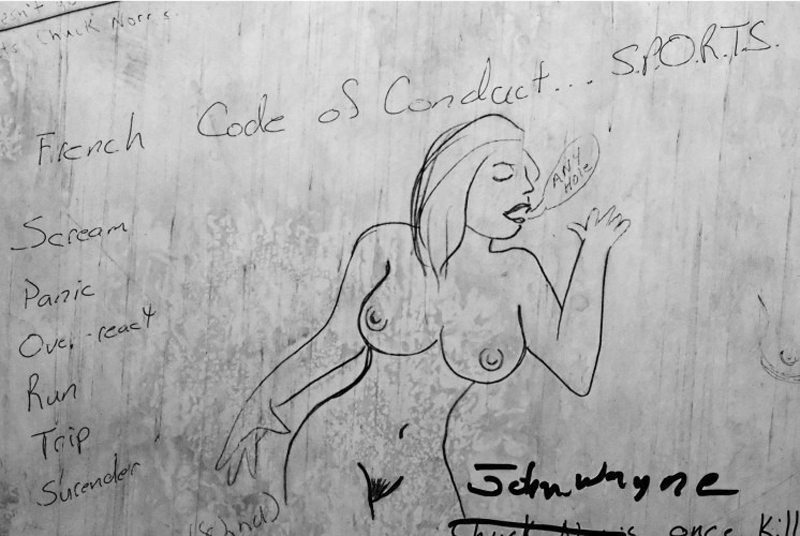 Chuck Norris
French Code of Conduct... S.P.O.R.T.S.
ANY
HOLE
Scream
Panic
Over-react
Run
Trip
Surender
John Wayne
Chuck Norris once Kill